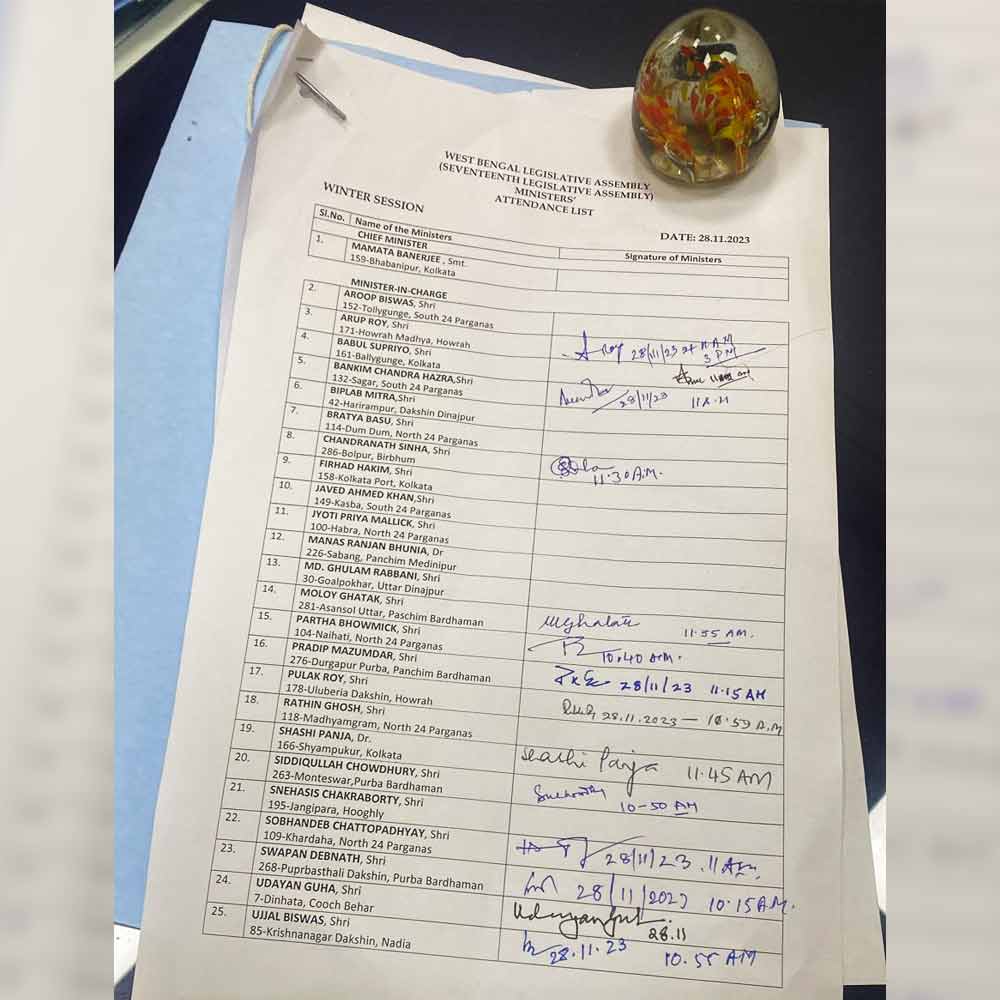 WEST BENGAL LEGISLATIVE ASSEMBLY
(SEVENTEENTH LEGISLATIVE ASSEMBLY)
MINISTERS'
ATTENDANCE LIST
WINTER SESSION
DATE: 28.11.2023
Sl.No. Name of the Ministers Signature of Ministers
CHIEF MINISTER
1. MAMATA BANERJEE , Smt.
159-Bhabanipur, Kolkata
MINISTER-IN-CHARGE
2. AROOP BISWAS, Shri
152-Tollygunge, South 24 Parganas
3. ARUP ROY, Shri
171-Howrah Madhya, Howrah
A Roy 28/11/23 at 11 A.M
3 PM
4. BABUL SUPRIYO, Shri
161-Ballygunge, Kolkata
5. BANKIM CHANDRA HAZRA,Shri
132-Sagar, South 24 Parganas
28/11/23 11 A.M
6. BIPLAB MITRA,Shri
42-Harirampur, Dakshin Dinajpur
7. BRATYA BASU, Shri
114-Dum Dum, North 24 Parganas
8. CHANDRANATH SINHA, Shri
286-Bolpur, Birbhum
11.30 A.M.
9. FIRHAD HAKIM, Shri
158-Kolkata Port, Kolkata
10. JAVED AHMED KHAN,Shri
149-Kasba, South 24 Parganas
11. JYOTI PRIYA MALLICK, Shri
100-Habra, North 24 Parganas
12. MANAS RANJAN BHUNIA, Dr
226-Sabang, Panchim Medinipur
13. MD. GHULAM RABBANI, Shri
30-Goalpokhar, Uttar Dinajpur
14. MOLOY GHATAK, Shri
281-Asansol Uttar, Paschim Bardhaman
11.55 AM.
15. PARTHA BHOWMICK, Shri
104-Naihati, North 24 Parganas
10.40 A.M.
16. PRADIP MAZUMDAR, Shri
276-Durgapur Purba, Panchim Bardhaman
28/11/23 11.15 AM
17. PULAK ROY, Shri
178-Uluberia Dakshin, Howrah
28.11.2023 — 10.59 A.M
18. RATHIN GHOSH, Shri
118-Madhyamgram, North 24 Parganas
19. SHASHI PANJA, Dr.
166-Shyampukur, Kolkata
Shashi Panja 11.45 AM
20. SIDDIQULLAH CHOWDHURY, Shri
263-Monteswar,Purba Bardhaman
21. SNEHASIS CHAKRABORTY, Shri
195-Jangipara, Hooghly
10-50 AM
22. SOBHANDEB CHATTOPADHYAY, Shri
109-Khardaha, North 24 Parganas
28/11/23 .11 AM
23. SWAPAN DEBNATH, Shri
268-Puprbasthali Dakshin, Purba Bardhaman
28/11/2023 10.15 A.M.
24. UDAYAN GUHA, Shri
7-Dinhata, Cooch Behar
28.11
25. UJJAL BISWAS, Shri
85-Krishnanagar Dakshin, Nadia
28.11.23 10.55 AM